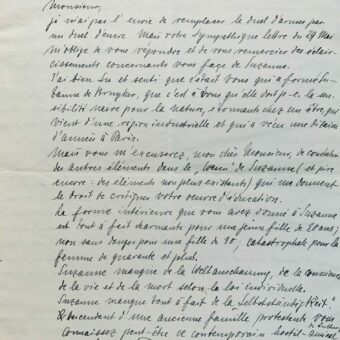 Monsieur,
je n'ai pas l'envie de remplacer le duel d'armes par
un duel d'encre. Mais votre sympathique lettre du 29 Mai
m'oblige de vous repondre et de vous remercier des éclair-
cissements concernants vous face de Suzanne.
J'ai bien lu et senti que c'était vous qui a formé Su-
zanne de , que c'est à vous qu'elle doit p.e. la sen-
sibilité naive pour la nature, etonnante chez un être, qui
vient d'une region industrielle et qui a vécu une dizaine
d'années à Paris.
Mais vous m'excuserez, mon cher Monsieur, de constater
des autres éléments dans le "coeur" de Suzanne (et pire
encore: des éléments non plus existants) qui me donnent
le droit de critiquer votre oeuvre d'éducation.
La forme interieure que vous avez donné à Suzanne
est tout à fait charmante pour une jeune fille de 20 ans;
non sans danger pour une fille de 30, catastrophale pour la
femme de quarante et plus.
Suzanne manque de la Weltanschauung, de la conscience
de la vie et de la mort selon la loi individuelle.
Suzanne manque tout à fait de la Selbstständigkeit
descendant d'une ancienne famille protestante vous
connaissez peut-être de contemporain